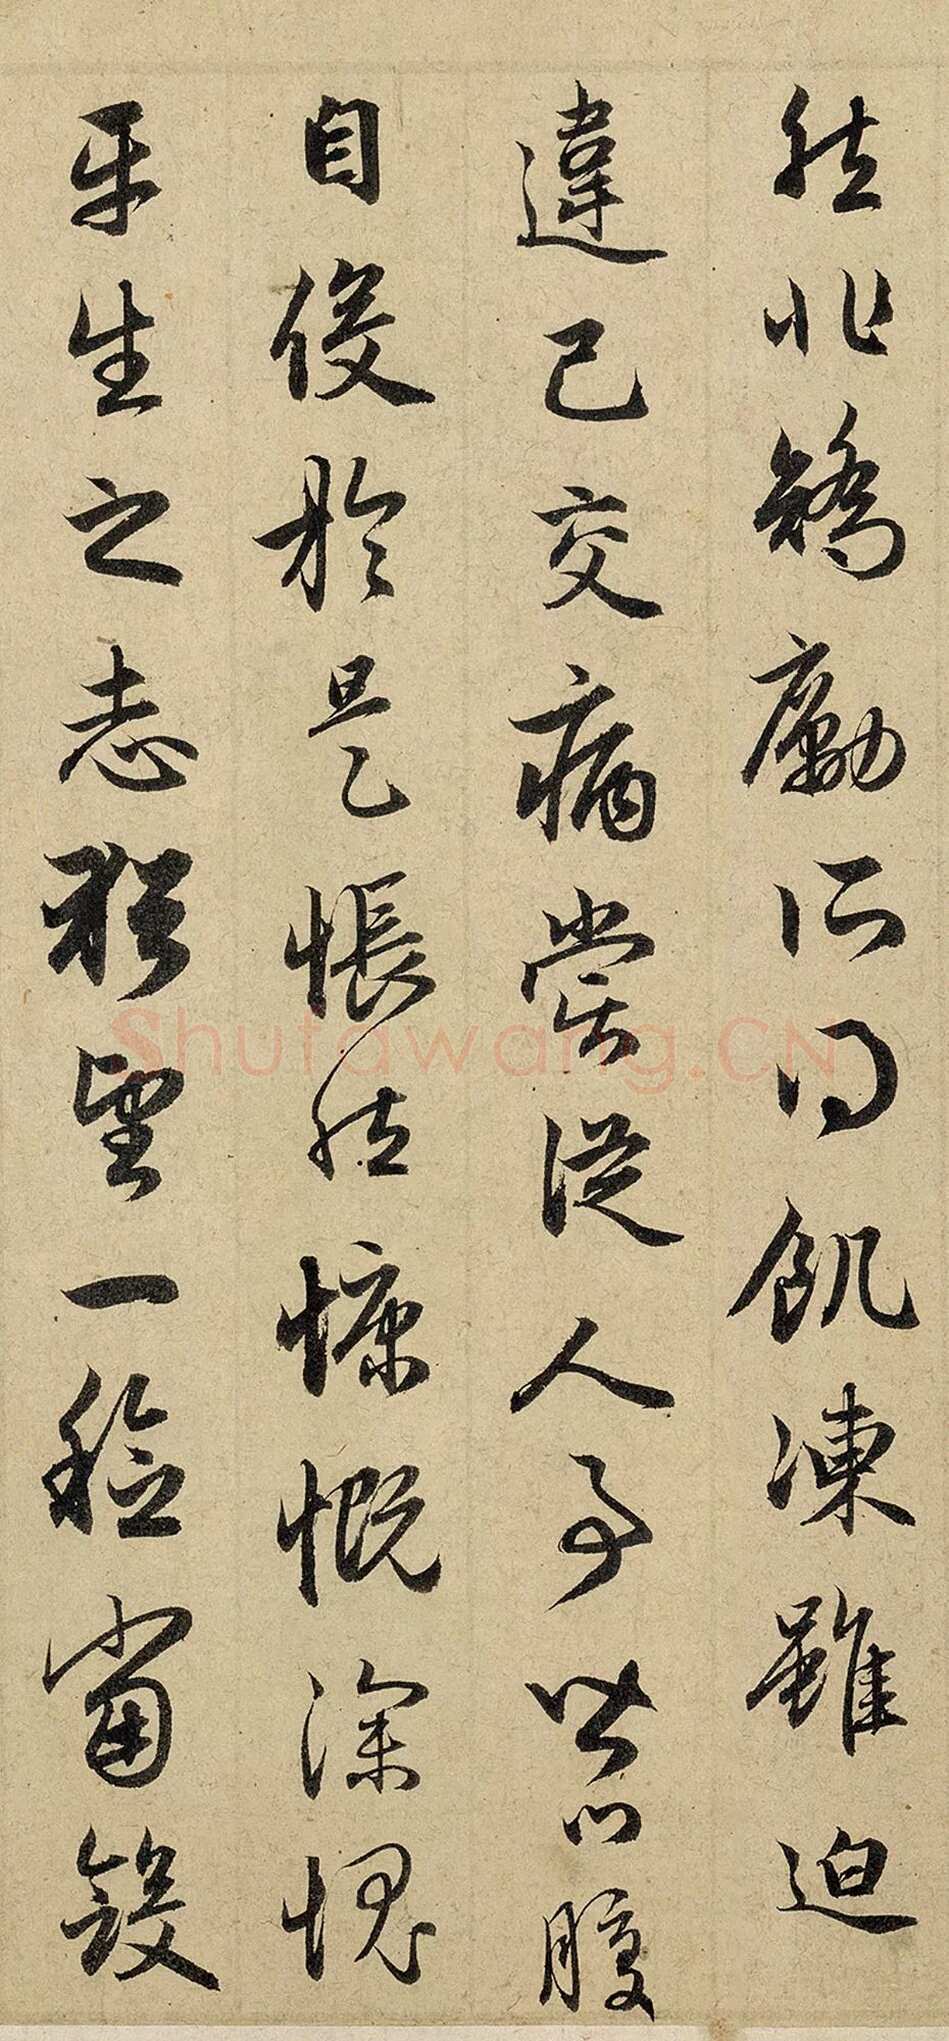 然非矯勵所得飢凍雖迫
違己交病嘗從人事皆口腹
自役於是悵然慷慨深愧
平生之志猶望一稔當斂
Shufawang.CN